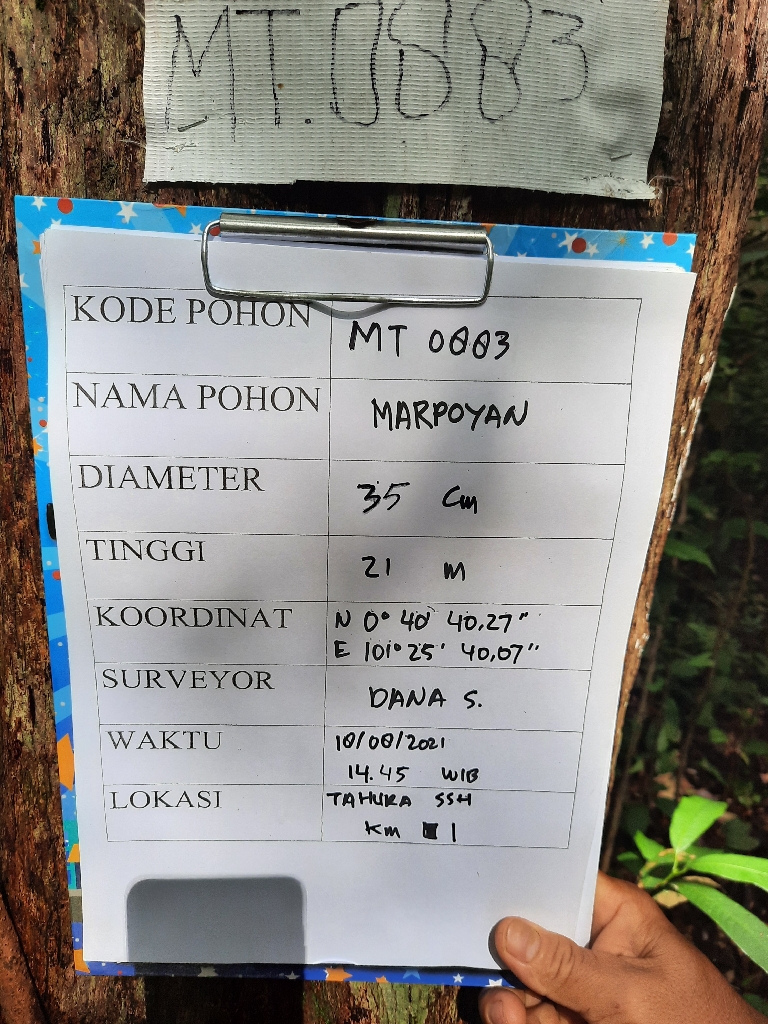 MT.0883
KODE POHON MT 0883
NAMA POHON MARPOYAN
DIAMETER 35 cm
TINGGI 21 m
KOORDINAT N 0° 40' 40,27"
E 101° 25' 40,07"
SURVEYOR DANA S.
WAKTU 18/08/2021
14.45 WIB
LOKASI TAHURA SSH
Km 1